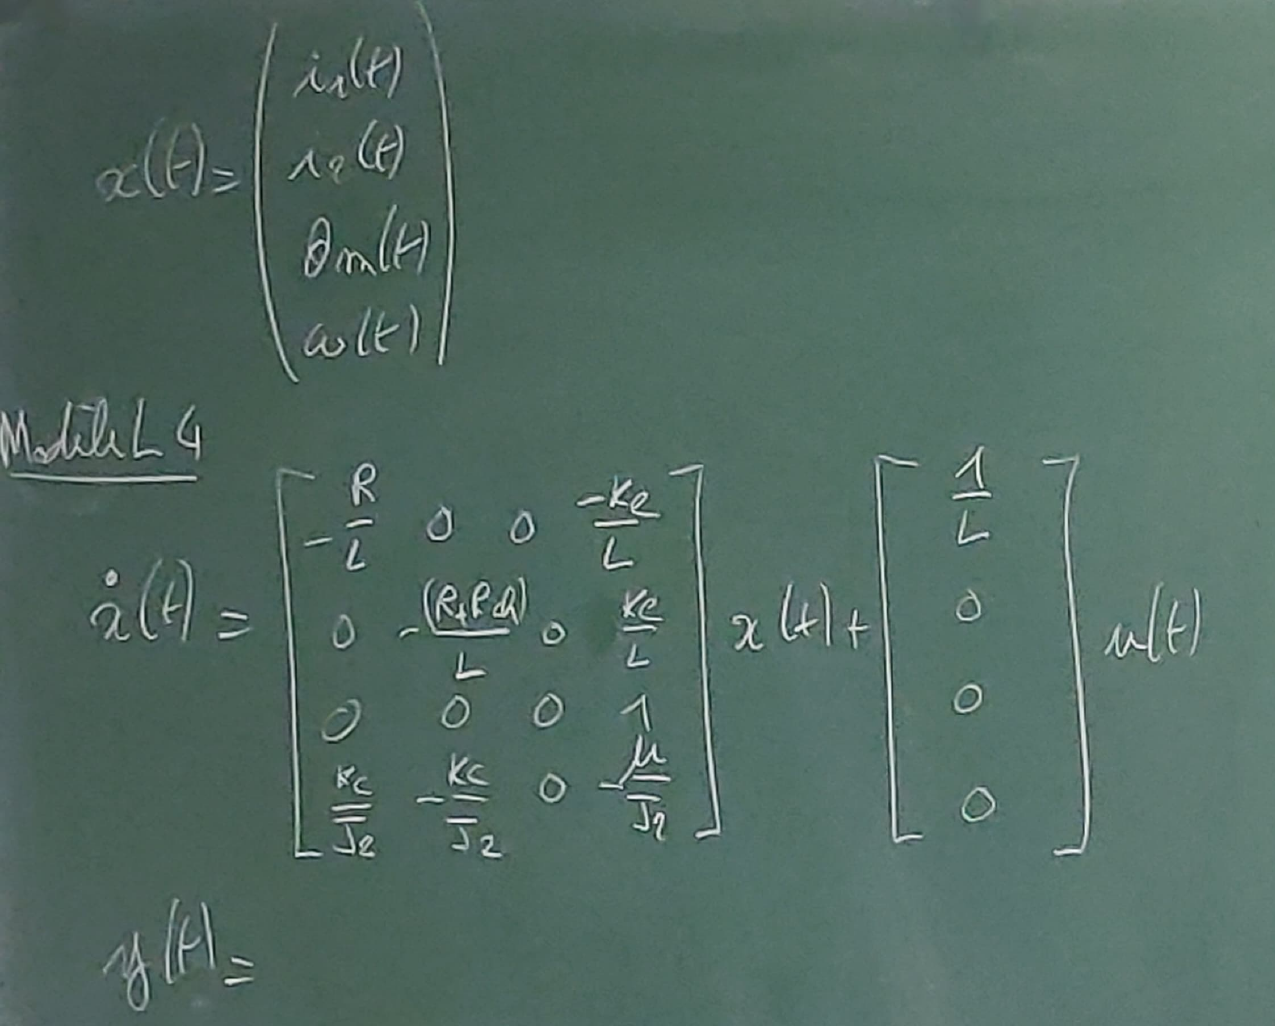 x(t) = ( i₁(t)
i₂(t)
θm(t)
ω(t) )
Modèle L 4
ẋ(t) = [ -R/L 0 0 -Ke/L
0 -(R+Rch)/L 0 Ke/L
0 0 0 1
Kc/J₂ -Kc/J₂ 0 -μ/J₂ ] x(t) + [ 1/L
0
0
0 ] u(t)
y(t) =